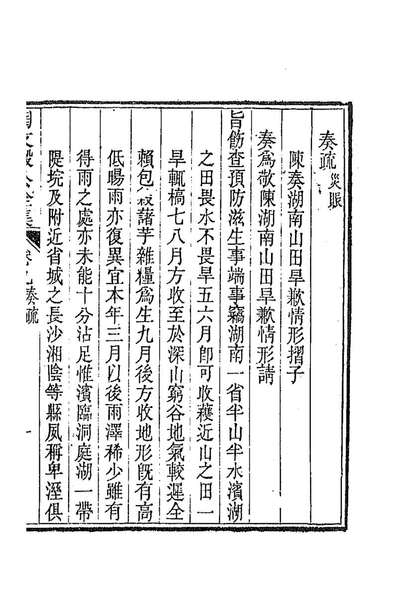 奏疏 災賑
陳奏湖南山田旱歉情形摺子
奏爲敬陳湖南山田旱歉情形請
旨飭查預防滋生事端事竊湖南一省半山半水濱湖
之田畏水不畏旱五六月卽可收穫近山之田一
旱輒槁七八月方收至於深山窮谷地氣較遲全
賴包穀諸芋雜糧爲生九月後方收地形既有高
低暘雨亦復異宜本年三月以後雨澤稀少雖有
得雨之處亦未能十分沾足惟濱臨洞庭湖一帶
隄垸及附近省城之長沙湘陰等縣夙稱卑溼俱
陶文毅公全集 卷九 奏疏 一